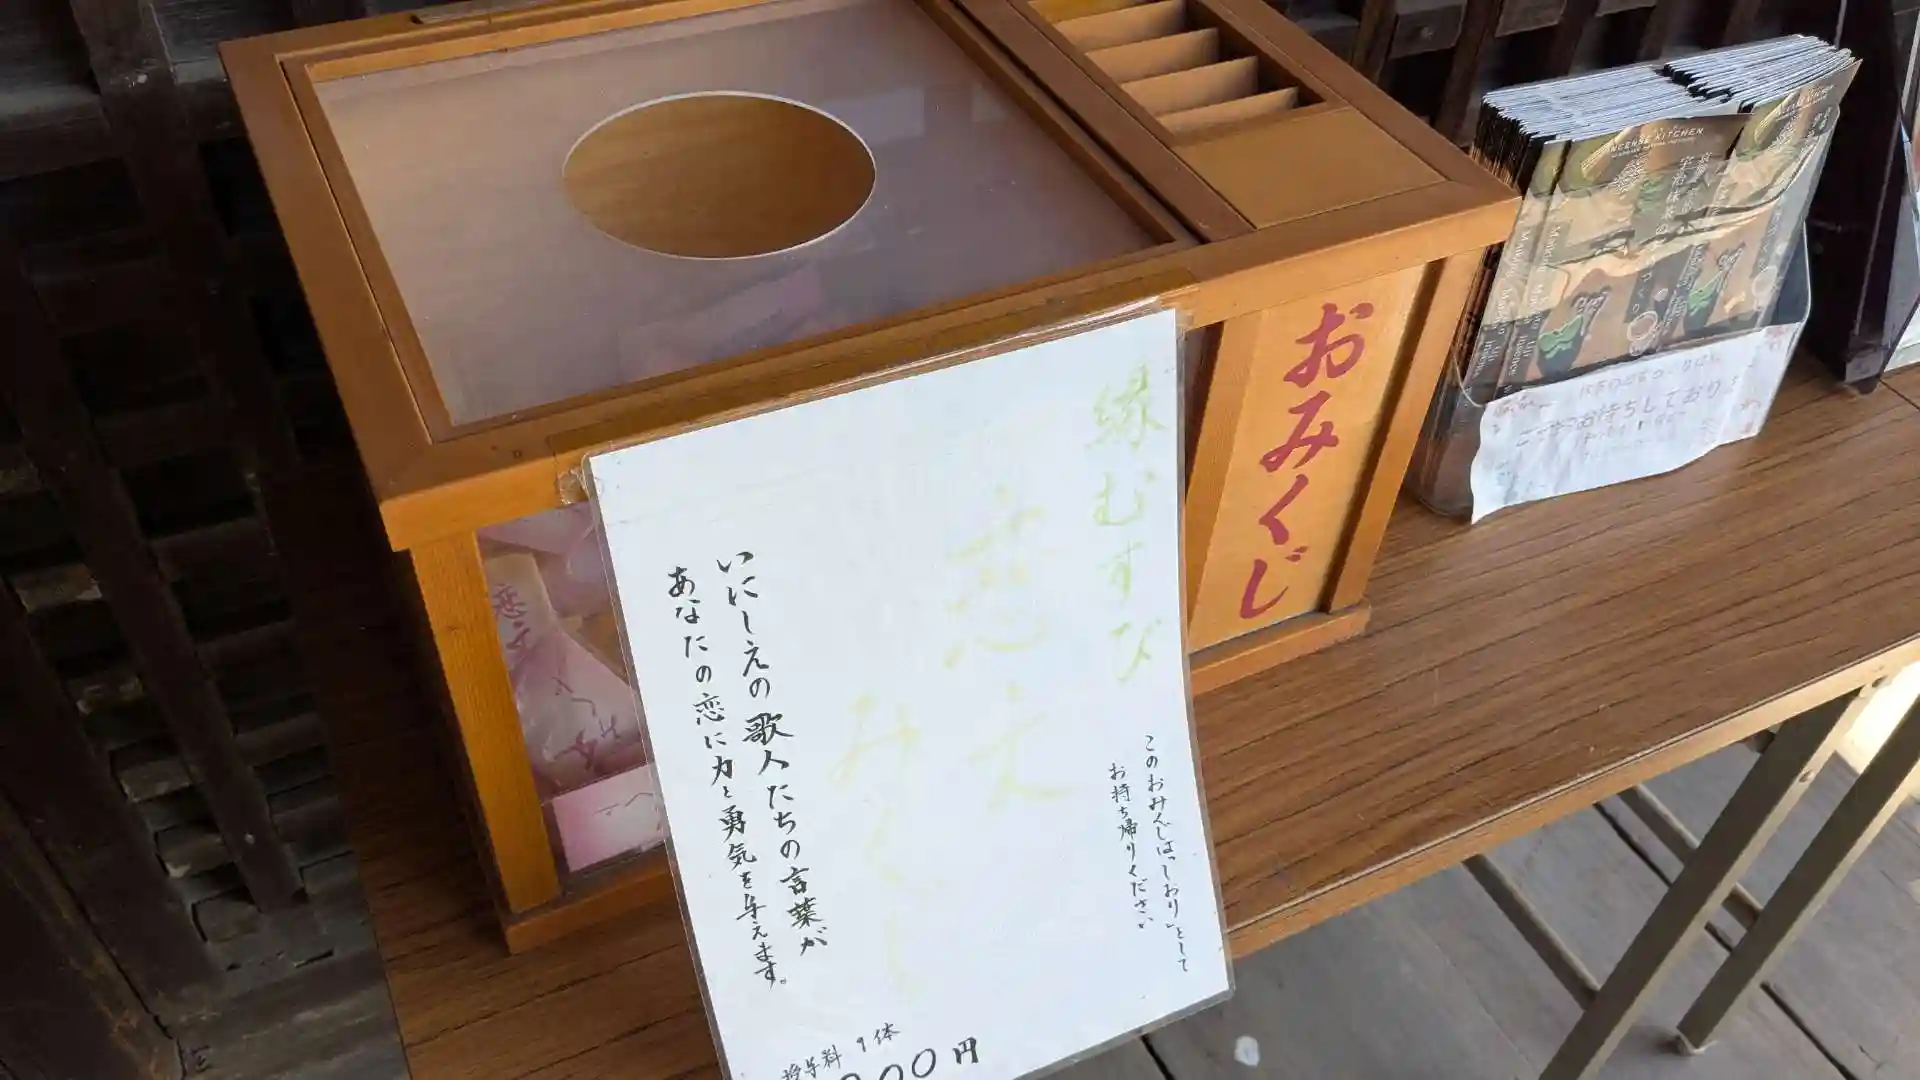 おみくじ
縁むすび
恋文
みくじ
このおみくじは"しおり"として
お持ち帰りください
いにしえの歌人たちの言葉が
あなたの恋に力と勇気を与えます。
授与料 1体
00円
恋文
INCENSE KITCHEN
宇治抹茶の
お待ちしており